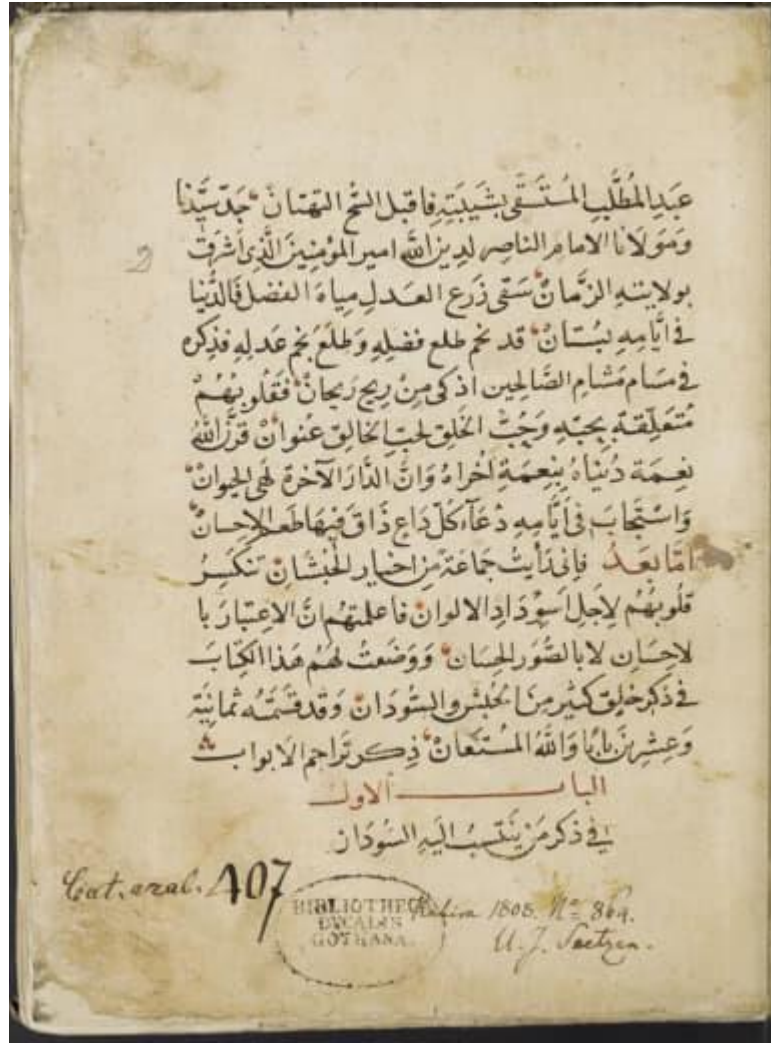 عَبدِ المُطَّلِبِ المُستَسقَى بشَيبَتِهِ فاقبل السَّحُّ التهتان جَدّ سَيِّدنا
2
وَمَوْلَانا الامام الناصِر لدِين اللّه امير المؤمِنينَ الَّذِى اَشرقَت
بولايتهِ الزَّمانُ سَقَى زَرعَ العَدلِ مِياهَ الفضل فَالدُّنيا
فى ايَّامِهِ بُستانٌ قد نجم طلع فضلِهِ وَطلعَ نجم عَدلِهِ فذِكره
فى مسام مَشامِ الصَّالحِين اذكى مِنْ رِيح رَيحانٌ فقَلُوبهُمْ
مُتَعلِّقة بِحبّهِ وَحُبّ الخَلق لحبّ الخالِق عنوانٌ قرَنَ اللّهُ
نِعمَة دُنيَاهُ بِنِعمَةِ اُخراهُ وَانَّ الدَّارَ الآخرة لهَى الحَيوانُ
وَاسْتجابَ فى اَيَّامِهِ دُعَآء كُلّ داعٍ ذاقَ فيهَا طعم الاِحسانْ
امّا بَعدُ فاِنى رَأيتُ جماعَة مِن اخيار الحُبشان تنكسِرُ
قلُوبهُم لاَجل اسوِدَادِ الالوان فاعلمتهُم انَّ الاعتبارَ با
لاحسَانِ لا بالصُّوَر الحِسانِ وَوَضَعتُ لهُم هَذا الكِتابَ
فى ذكر خلقٍ كثير مِنَ الحُبش والسُّودَان وَقد قسَّمتُه ثمانِيَة
وَعِشرِينَ بابًا وَاللّهُ المُستَعانُ ذِكر تَراجم الابواب
الباب الاول
فى ذكر مَن يَنتَسِبُ اليَهِ السُّودَان
Cat. arab. 407
BIBLIOTHECA DVCALIS GOTHANA
Kahira 1808. No 864.
U. J. Seetzen.